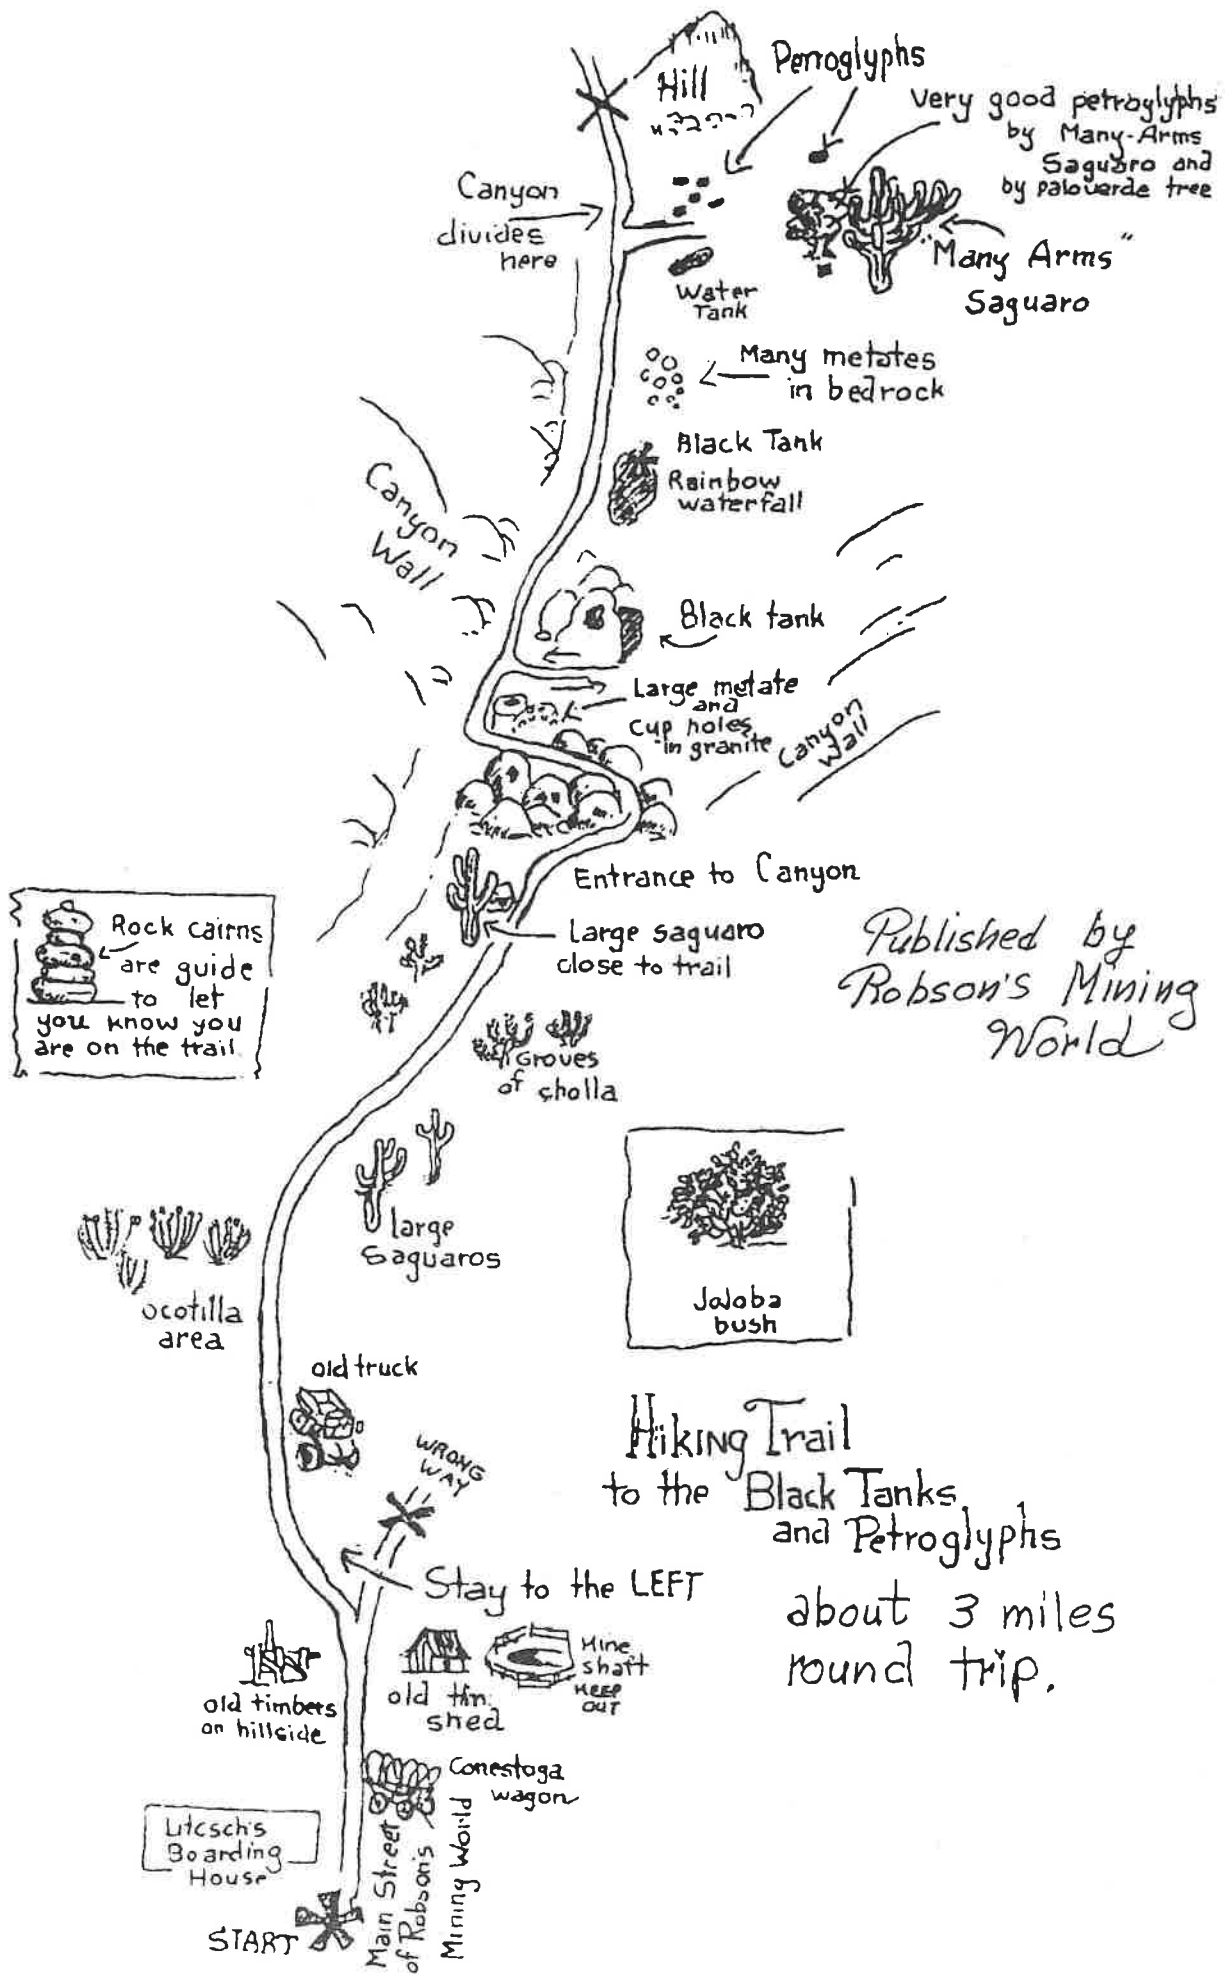 Hill
Perroglyphs
Very good petroglyphs
by Many-Arms
Saguaro and
by paloverde tree
Canyon
divides
here
"Many Arms"
Saguaro
Water
Tank
Many metates
in bedrock
Black Tank
Rainbow
waterfall
Canyon
Wall
Black tank
Large metate
and
Cup holes
in granite
Canyon
Wall
Entrance to Canyon
Large saguaro
close to trail
Rock cairns
are guide
to let
you know you
are on the trail
Published by
Robson's Mining
World
Groves
of cholla
large
Saguaros
Ocotilla
area
Jojoba
bush
old truck
WRONG
WAY
Hiking Trail
to the Black Tanks
and Petroglyphs
about 3 miles
round trip.
Stay to the LEFT
old timbers
on hillside
old tin
shed
Mine
shaft
KEEP
OUT
Conestoga
wagon
Litcsch's
Boarding
House
Main Street
of Robson's
Mining World
START